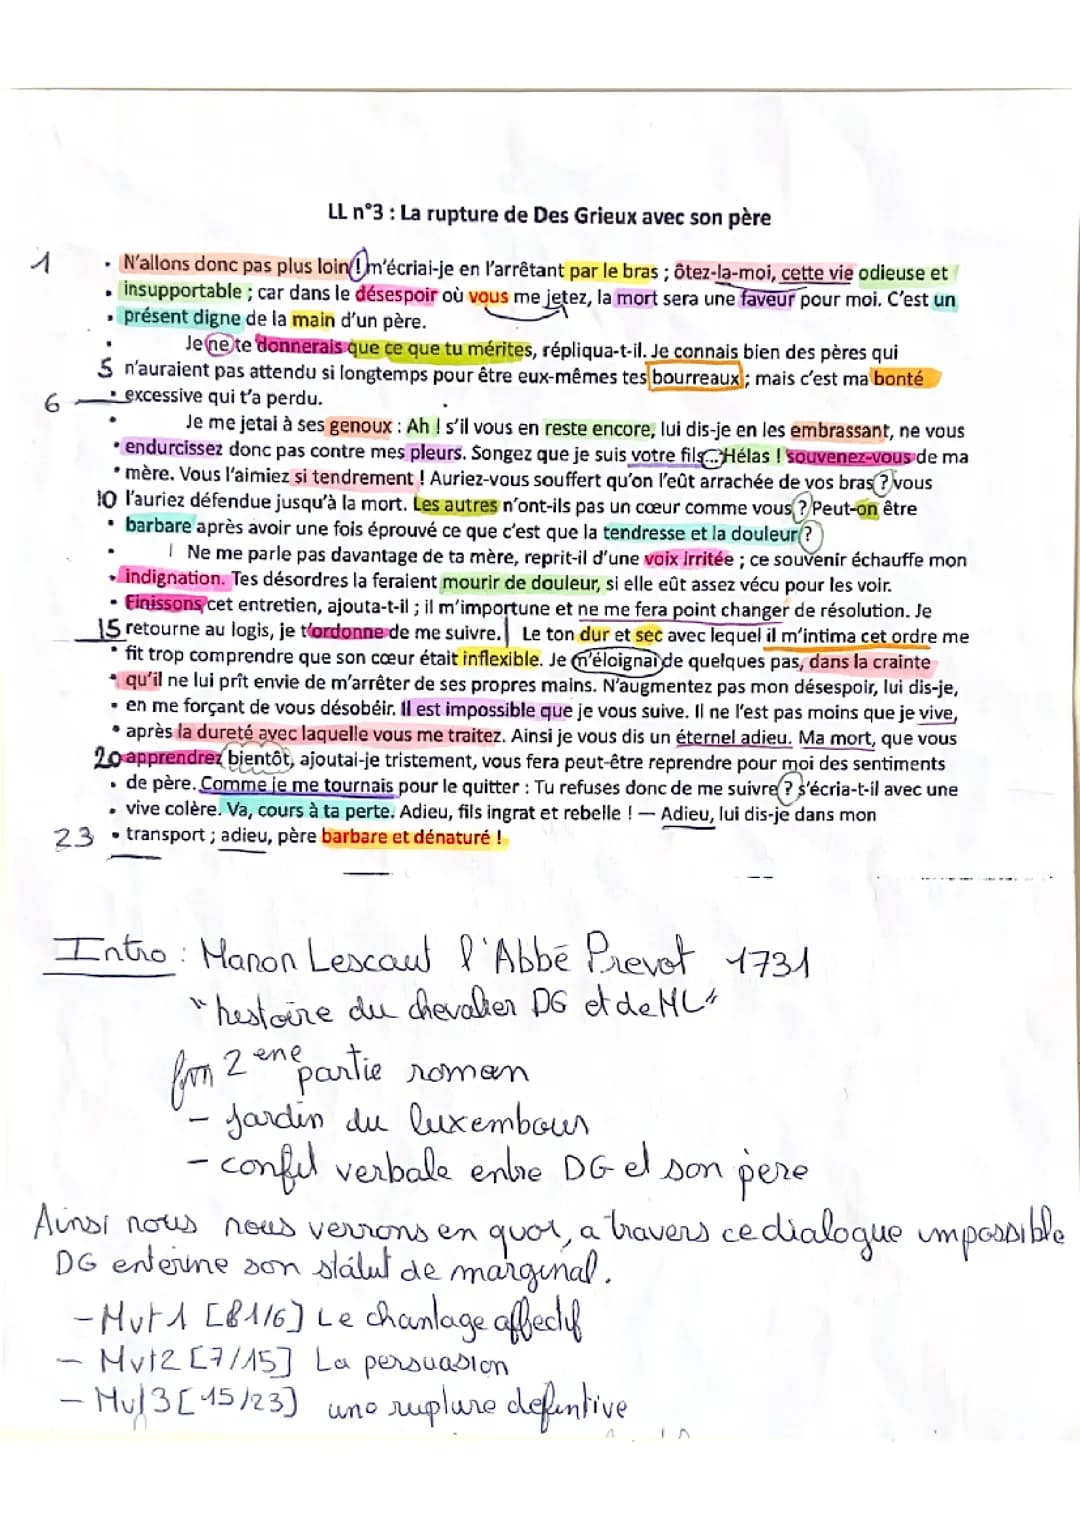 LL n°3 : La rupture de Des Grieux avec son père
1 N'allons donc pas plus loin ! m'écriai-je en l'arrêtant par le bras ; ôtez-la-moi, cette vie odieuse et
insupportable ; car dans le désespoir où vous me jetez, la mort sera une faveur pour moi. C'est un
présent digne de la main d'un père.
Je ne te donnerais que ce que tu mérites, répliqua-t-il. Je connais bien des pères qui
5 n'auraient pas attendu si longtemps pour être eux-mêmes tes bourreaux ; mais c'est ma bonté
6 excessive qui t'a perdu.
Je me jetai à ses genoux : Ah ! s'il vous en reste encore, lui dis-je en les embrassant, ne vous
endurcissez donc pas contre mes pleurs. Songez que je suis votre fils... Hélas ! souvenez-vous de ma
mère. Vous l'aimiez si tendrement ! Auriez-vous souffert qu'on l'eût arrachée de vos bras ? vous
10 l'auriez défendue jusqu'à la mort. Les autres n'ont-ils pas un cœur comme vous ? Peut-on être
barbare après avoir une fois éprouvé ce que c'est que la tendresse et la douleur ?
Ne me parle pas davantage de ta mère, reprit-il d'une voix irritée ; ce souvenir échauffe mon
indignation. Tes désordres la feraient mourir de douleur, si elle eût assez vécu pour les voir.
Finissons cet entretien, ajouta-t-il ; il m'importune et ne me fera point changer de résolution. Je
15 retourne au logis, je t'ordonne de me suivre. Le ton dur et sec avec lequel il m'intima cet ordre me
fit trop comprendre que son cœur était inflexible. Je m'éloignai de quelques pas, dans la crainte
qu'il ne lui prît envie de m'arrêter de ses propres mains. N'augmentez pas mon désespoir, lui dis-je,
en me forçant de vous désobéir. Il est impossible que je vous suive. Il ne l'est pas moins que je vive,
après la dureté avec laquelle vous me traitez. Ainsi je vous dis un éternel adieu. Ma mort, que vous
20 apprendrez bientôt, ajoutai-je tristement, vous fera peut-être reprendre pour moi des sentiments
de père. Comme je me tournais pour le quitter : Tu refuses donc de me suivre ? s'écria-t-il avec une
vive colère. Va, cours à ta perte. Adieu, fils ingrat et rebelle ! — Adieu, lui dis-je dans mon
23 transport ; adieu, père barbare et dénaturé !
Intro : Manon Lescaut l'Abbé Prevot 1731
"hestoire du chevalier DG et de ML"
2 eme partie roman
- Jardin du luxembour
- verbale entre DG et son père
Ainsi nous nous verrons en quoi, a travers ce dialogue impossible
DG enterine son statut de marginal.
- Mvt 1 [1/6] Le chantage affectif
- Mvt 2 [7/15] La persuasion
- Mvt 3 [15/23] une rupture defintive